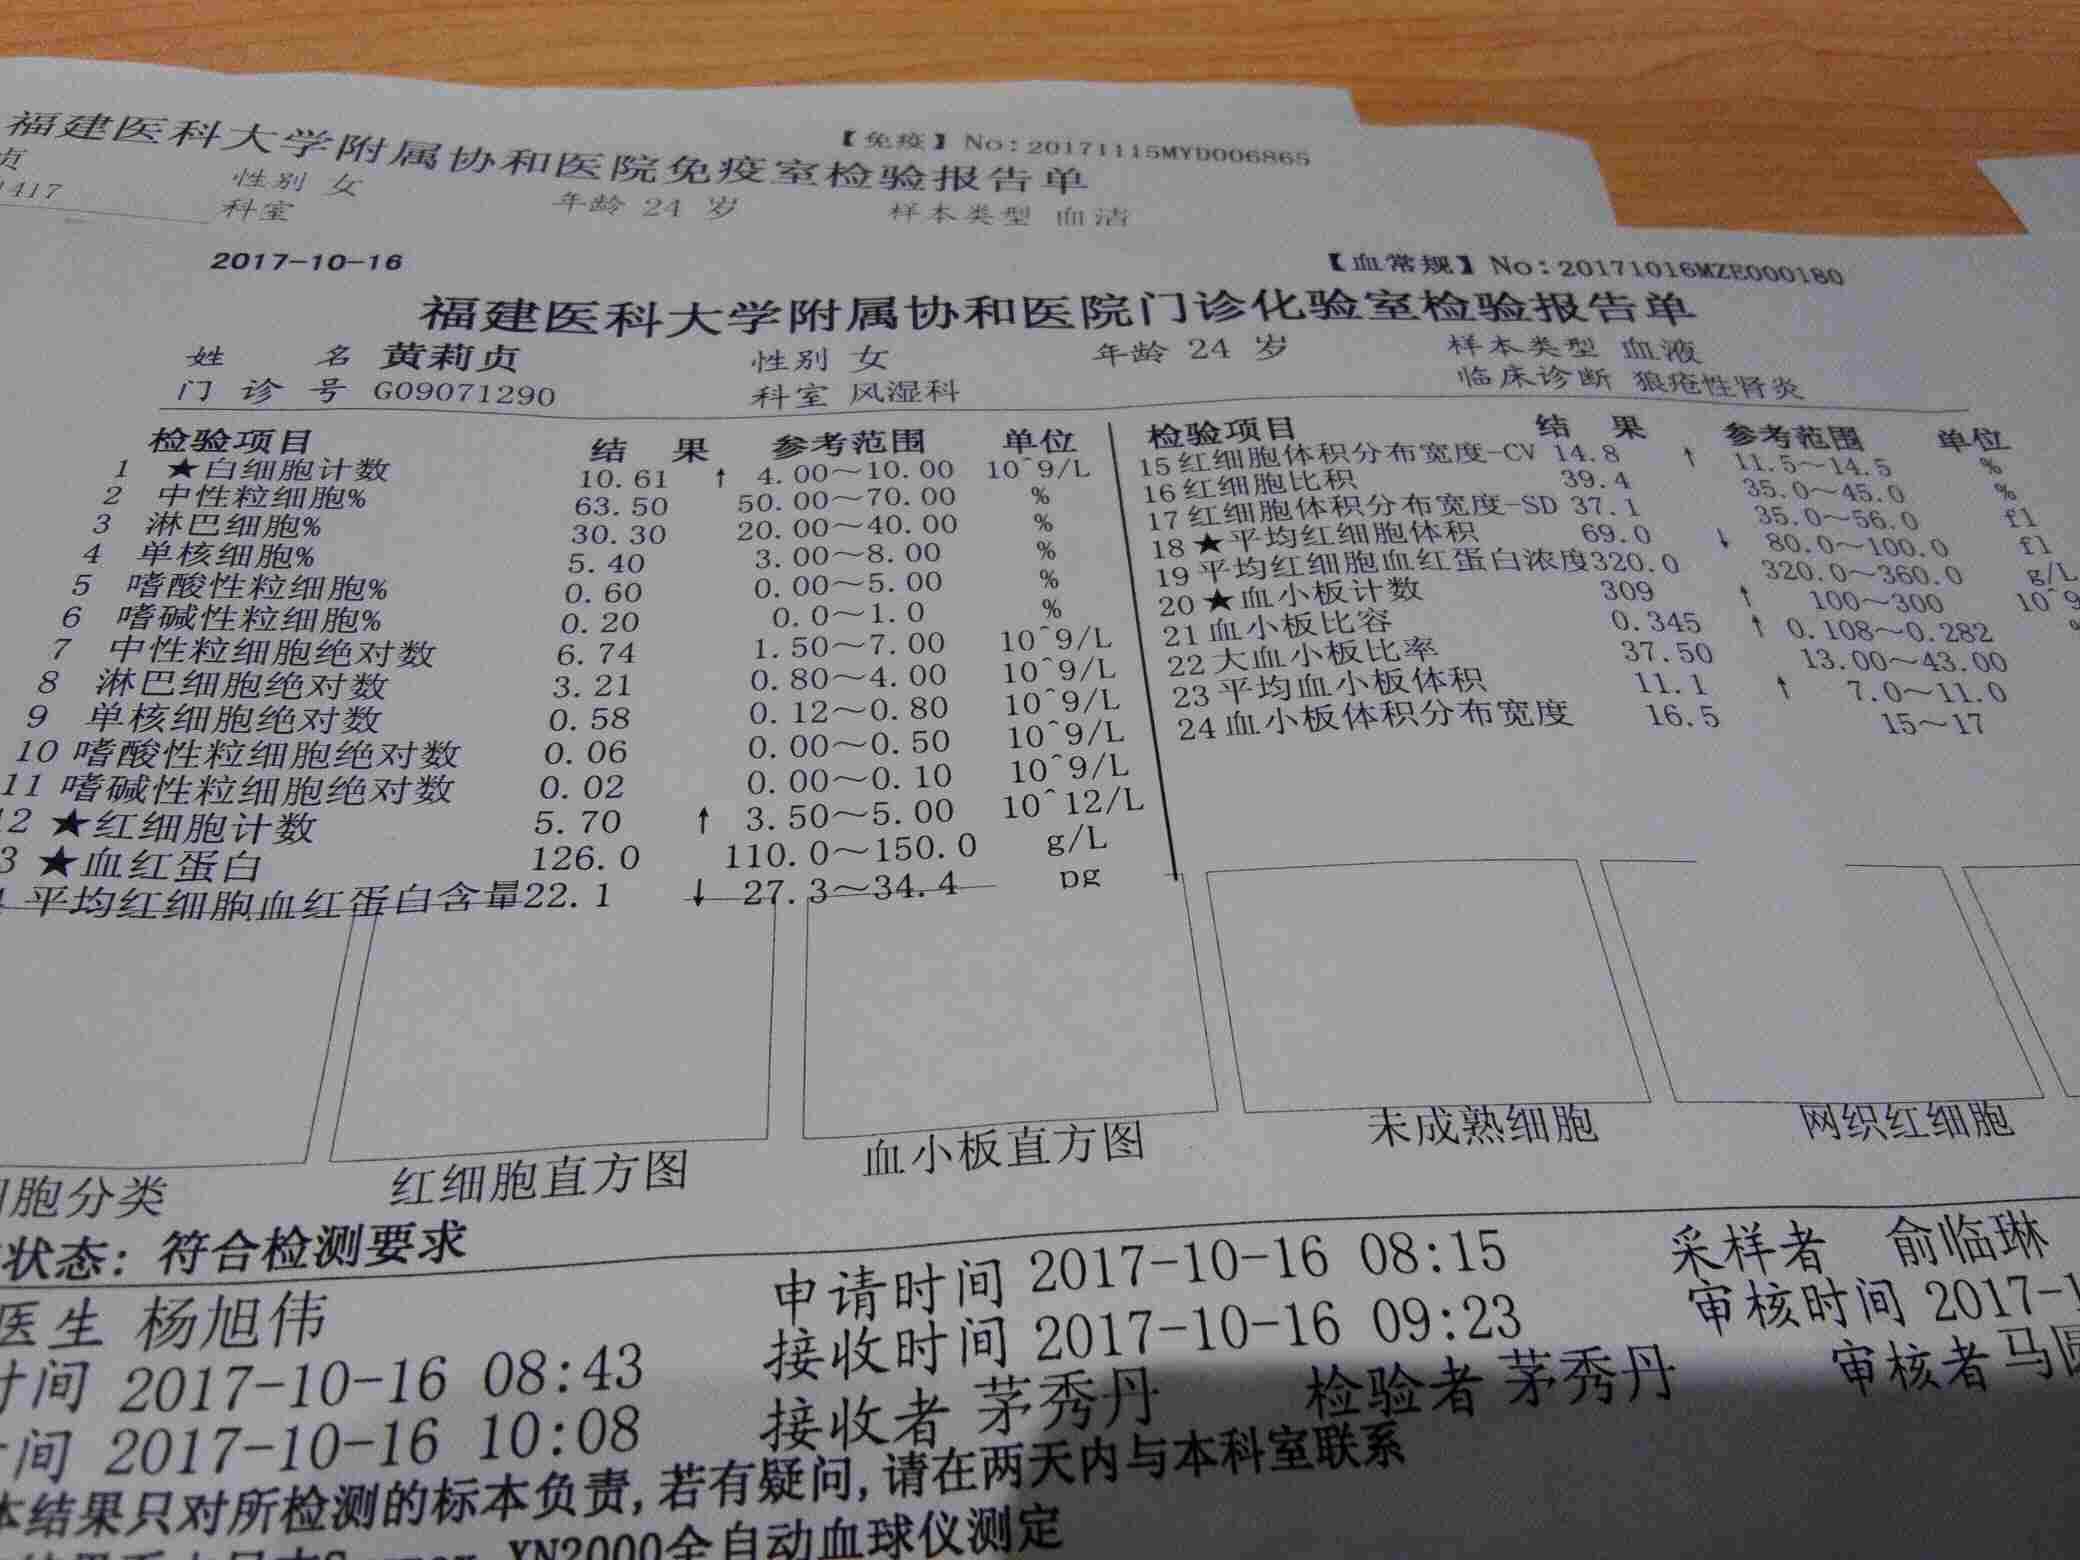 【免疫】No:20171115MYD006865
福建医科大学附属协和医院免疫室检验报告单
贞 性别 女 年龄 24 岁 样本类型 血清
1417 科室
2017-10-16 【血常规】No:20171016MZE000180
福建医科大学附属协和医院门诊化验室检验报告单
姓 名 黄莉贞 性别 女 年龄 24 岁 样本类型 血液
门 诊 号 G09071290 科室 风湿科 临床诊断 狼疮性肾炎
检验项目 结 果 参考范围 单位
1 ★白细胞计数 10.61 ↑ 4.00~10.00 10^9/L
2 中性粒细胞% 63.50 50.00~70.00 %
3 淋巴细胞% 30.30 20.00~40.00 %
4 单核细胞% 5.40 3.00~8.00 %
5 嗜酸性粒细胞% 0.60 0.00~5.00 %
6 嗜碱性粒细胞% 0.20 0.0~1.0 %
7 中性粒细胞绝对数 6.74 1.50~7.00 10^9/L
8 淋巴细胞绝对数 3.21 0.80~4.00 10^9/L
9 单核细胞绝对数 0.58 0.12~0.80 10^9/L
10 嗜酸性粒细胞绝对数 0.06 0.00~0.50 10^9/L
11 嗜碱性粒细胞绝对数 0.02 0.00~0.10 10^9/L
2 ★红细胞计数 5.70 ↑ 3.50~5.00 10^12/L
3 ★血红蛋白 126.0 110.0~150.0 g/L
平均红细胞血红蛋白含量22.1 ↓ 27.3~34.4 pg
检验项目 结 果 参考范围 单位
15 红细胞体积分布宽度-CV 14.8 ↑ 11.5~14.5 %
16 红细胞比积 39.4 35.0~45.0 %
17 红细胞体积分布宽度-SD 37.1 35.0~56.0 fl
18 ★平均红细胞体积 69.0 ↓ 80.0~100.0 fl
19 平均红细胞血红蛋白浓度320.0 320.0~360.0 g/L
20 ★血小板计数 309 ↑ 100~300 10^9
21 血小板比容 0.345 ↑ 0.108~0.282 %
22 大血小板比率 37.50 13.00~43.00
23 平均血小板体积 11.1 ↑ 7.0~11.0
24 血小板体积分布宽度 16.5 15~17
胞分类 红细胞直方图 血小板直方图 未成熟细胞 网织红细胞
状态: 符合检测要求
医生 杨旭伟 申请时间 2017-10-16 08:15 采样者 俞临琳
时间 2017-10-16 08:43 接收时间 2017-10-16 09:23 审核时间 2017-1
间 2017-10-16 10:08 接收者 茅秀丹 检验者 茅秀丹 审核者 马
本结果只对所检测的标本负责,若有疑问,请在两天内与本科室联系
XN2000全自动血球仪测定